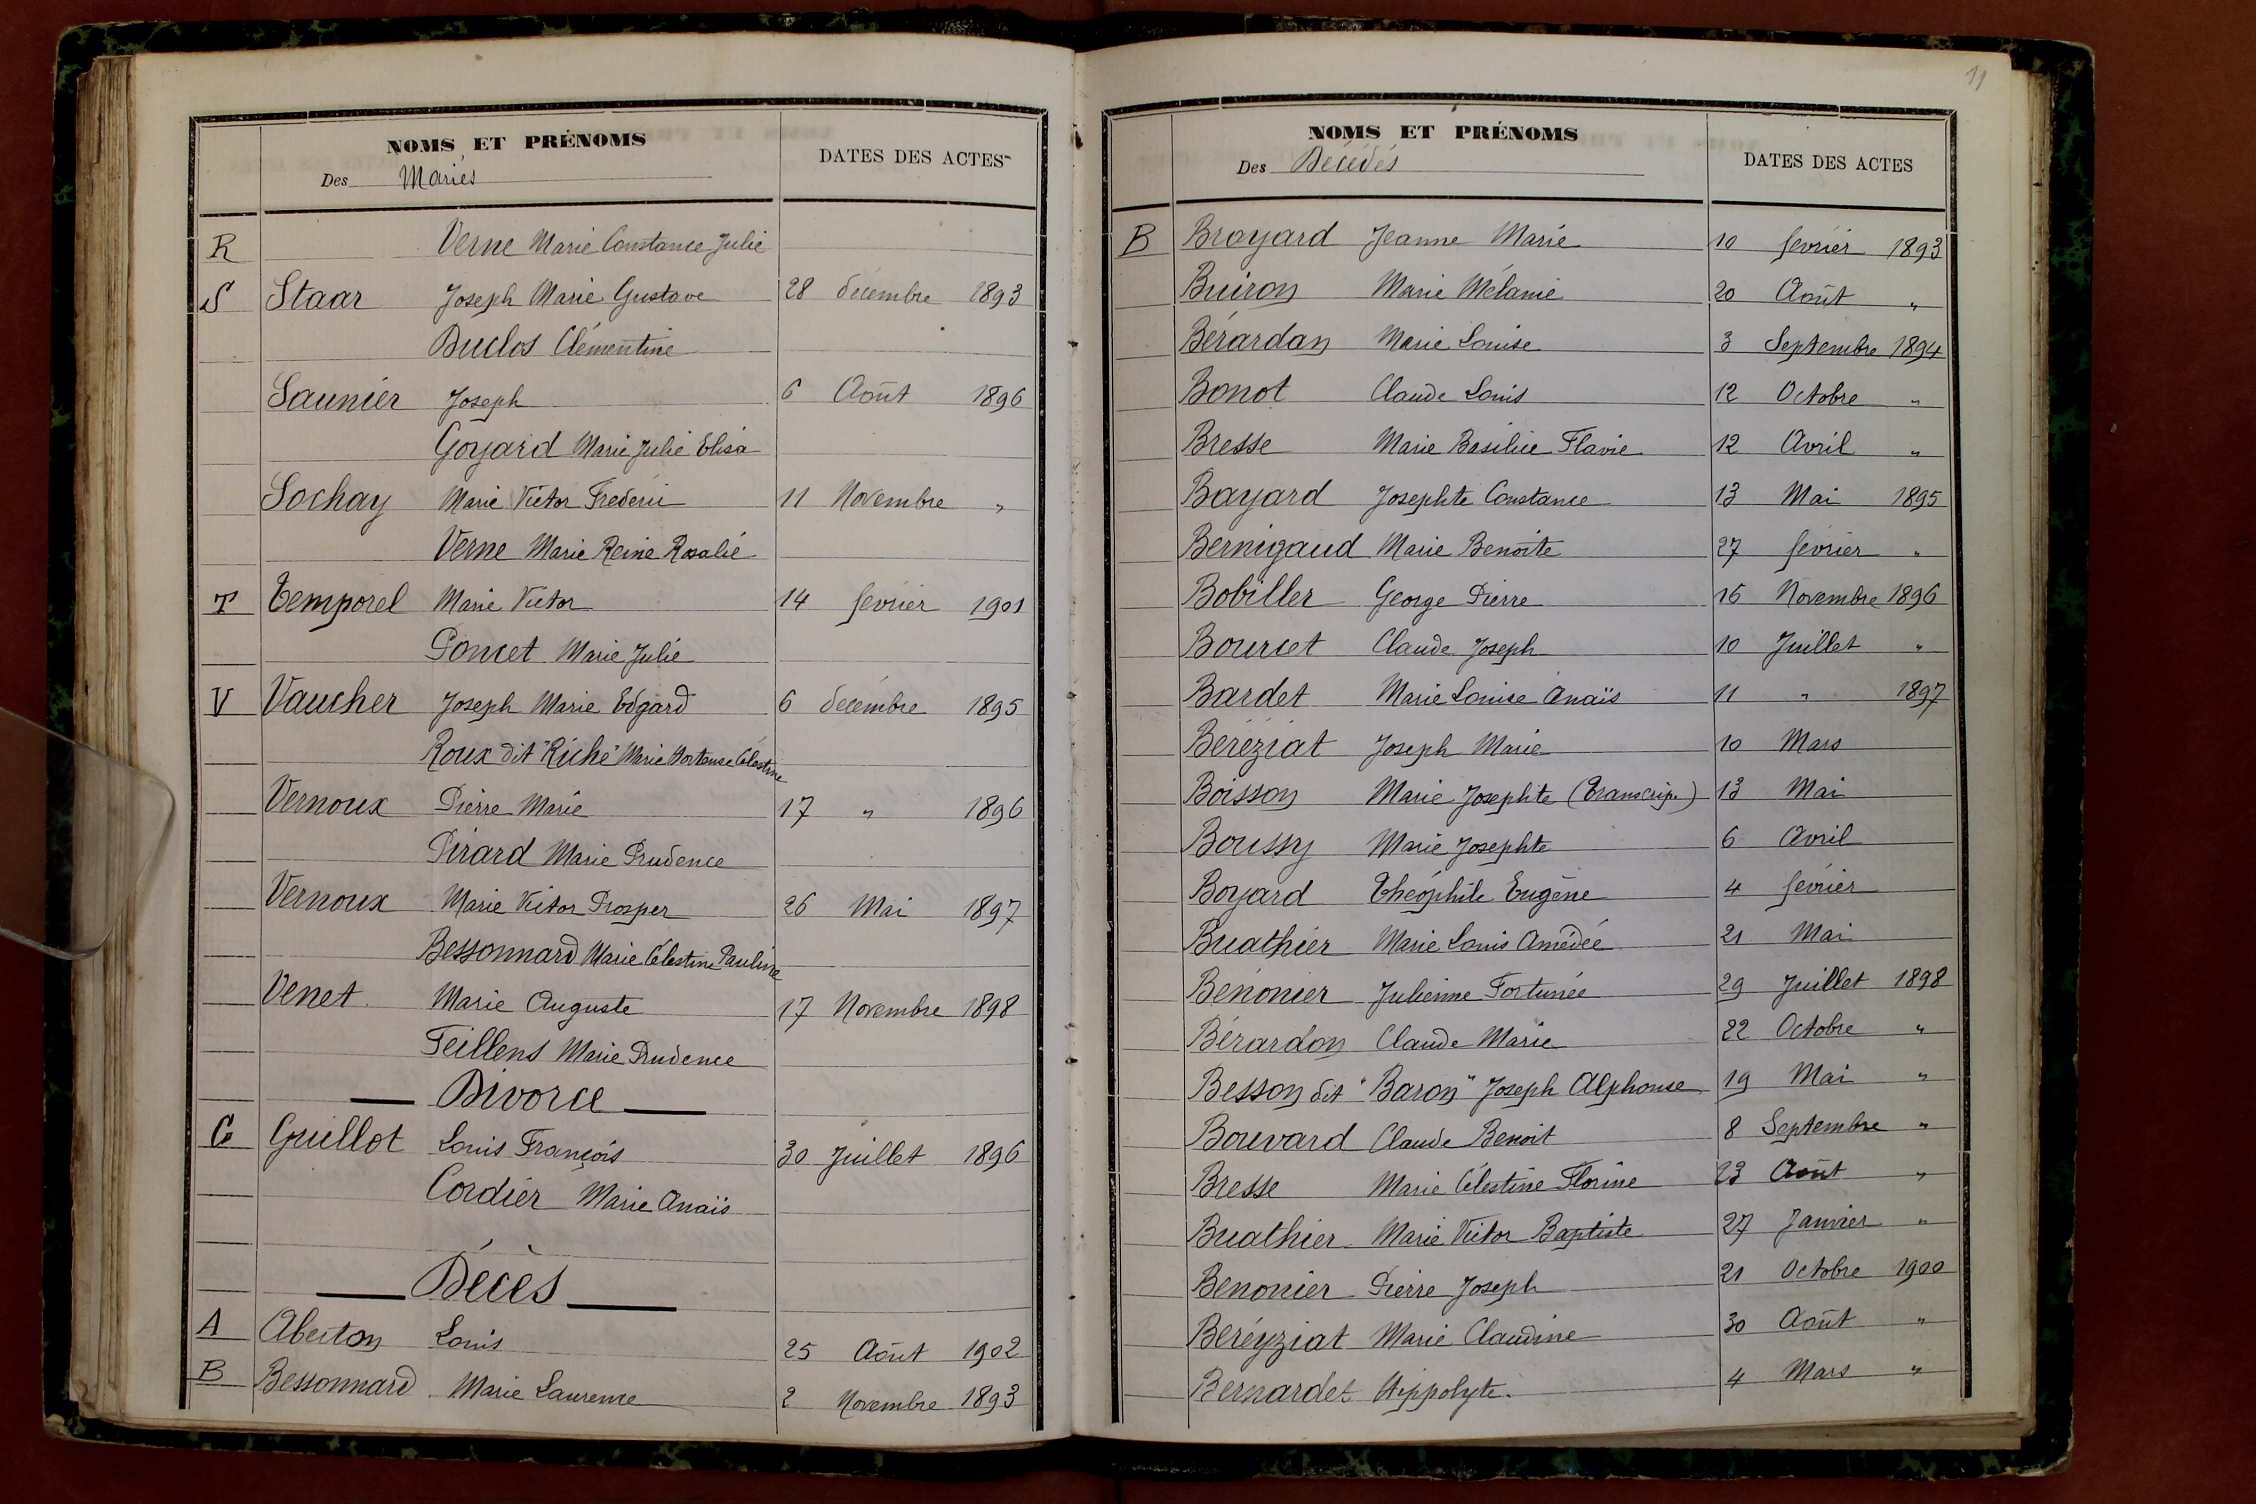 NOMS ET PRÉNOMS
Des Mariés
DATES DES ACTES
R Verne Marie Constance Julie
S Staar Joseph Marie Gustave 28 décembre 1893
Duclos Clémentine
Saunier Joseph 6 Août 1896
Goyard Marie Julie Elisa
Sochay Marie Victor Frédéric 11 Novembre "
Verne Marie Reine Rosalie
T Temporel Marie Victor 14 février 1901
Poncet Marie Julie
V Vaucher Joseph Marie Edgard 6 décembre 1895
Roux dit "Riche" Marie Hortense Célestine
Vernoux Pierre Marie 17 " 1896
Pirard Marie Prudence
Vernoux Marie Victor Prosper 26 Mai 1897
Bessonnard Marie Célestine Pauline
Venet Marie Auguste 17 Novembre 1898
Feillens Marie Prudence
Divorce
G Guillot Louis François 30 Juillet 1896
Cordier Marie Anaïs
Décès
A Aberton Louis 25 Août 1902
B Bessonnard Marie Laurence 2 Novembre 1893
11
NOMS ET PRÉNOMS
Des Décédés
DATES DES ACTES
B Broyard Jeanne Marie 10 février 1893
Buiron Marie Mélanie 20 Août "
Bérardan Marie Louise 3 Septembre 1894
Bonot Claude Louis 12 Octobre "
Bresse Marie Basilice Flavie 12 Avril "
Bayard Josephte Constance 13 Mai 1895
Bernigaud Marie Benoîte 27 février "
Bobiller George Pierre 16 Novembre 1896
Bourcet Claude Joseph 10 Juillet "
Bardet Marie Louise Anaïs 11 " 1897
Béréziat Joseph Marie 10 Mars
Boisson Marie Josephte (Transcrip.) 13 Mai
Boussy Marie Josephte 6 Avril
Boyard Théophile Eugène 4 février
Buathier Marie Louis Amédée 21 Mai
Bénonier Julienne Fortunée 29 Juillet 1898
Bérardon Claude Marie 22 Octobre "
Besson dit "Baron" Joseph Alphonse 19 Mai "
Bouvard Claude Benoit 8 Septembre "
Bresse Marie Célestine Florine 23 Août "
Buathier Marie Victor Baptiste 27 Janvier "
Benonier Pierre Joseph 21 Octobre 1900
Beréyziat Marie Claudine 30 Août "
Bernardet Hippolyte. 4 Mars "